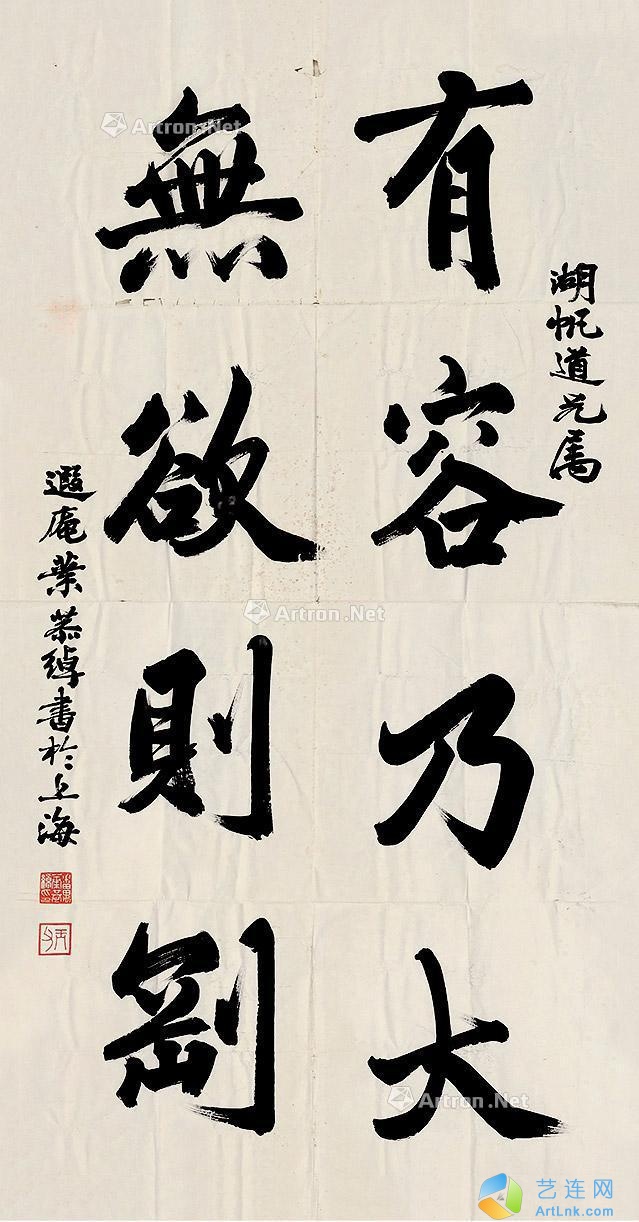 湖帆道兄属
有容乃大
無欲則剛
遐庵葉恭綽書於上海
Artron.Net
Artron.Net
Artron.Net
艺连网
ArtLnk.com